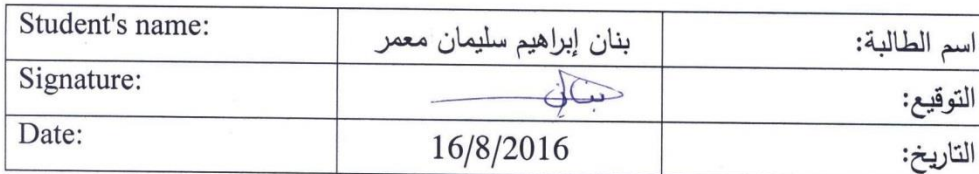 Student's name: بنان إبراهيم سليمان معمر اسم الطالبة:
Signature: بنان التوقيع:
Date: 16/8/2016 التاريخ: